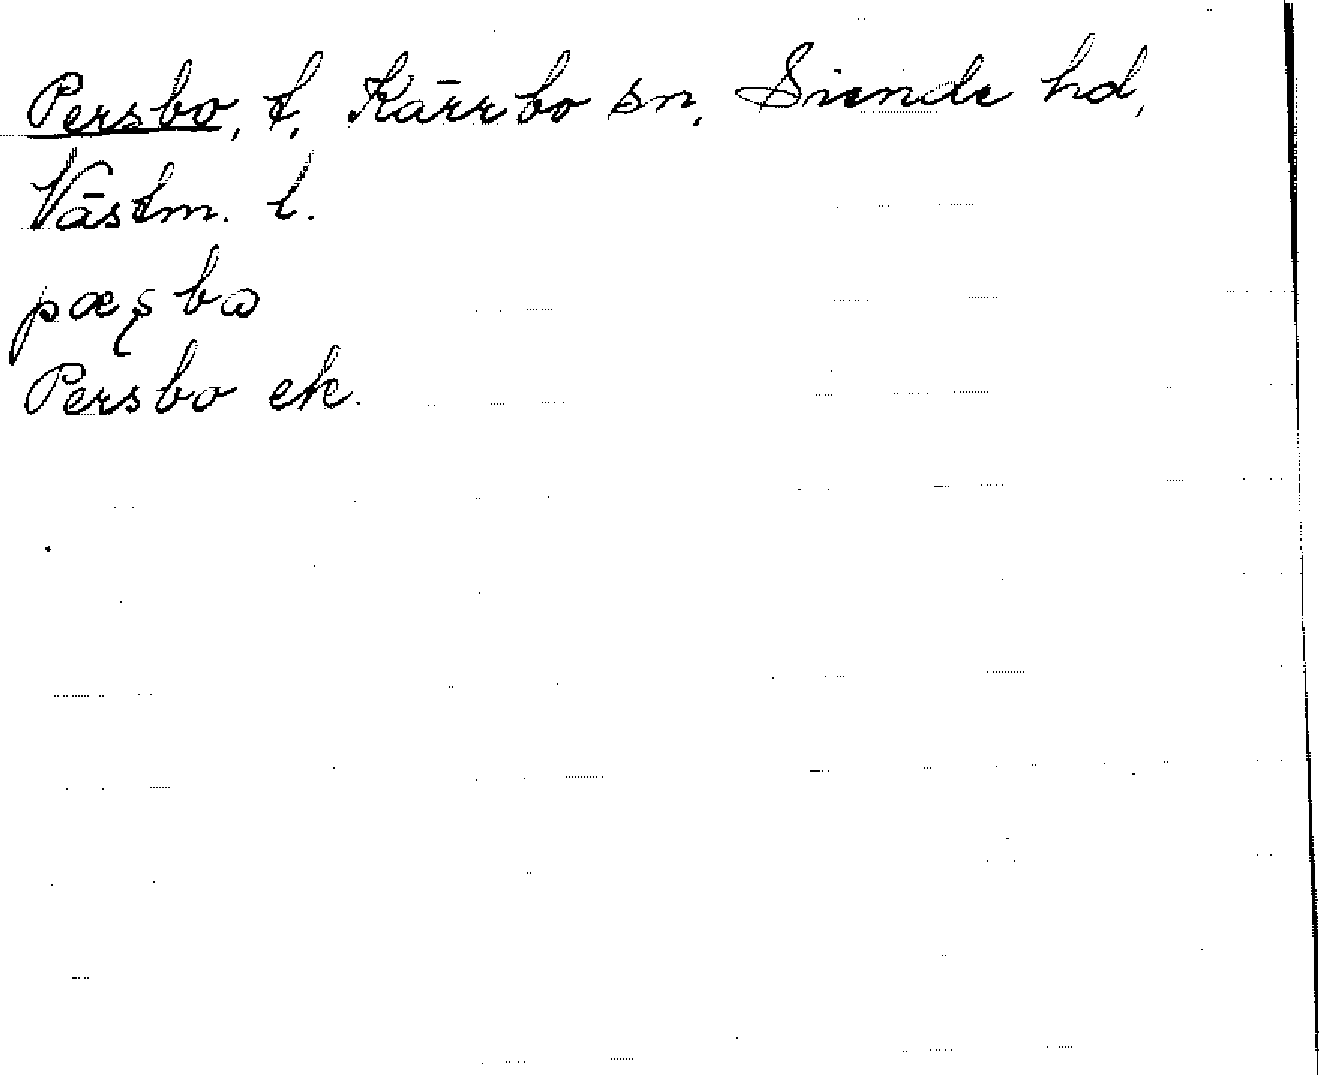 Persbo, t, Kärrbo sn, Siende hd,
Västm. l.
pæʂbɷ
Persbo ek.